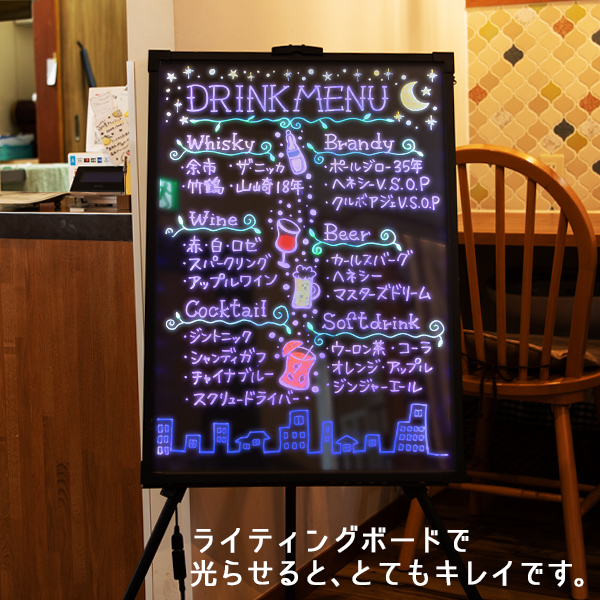 DRINK MENU
Whisky
・余市 ザ・ニッカ
・竹鶴 ・山崎18年
Brandy
・ポールジロー35年
・ヘネシーV.S.O.P
・クルボアジェV.S.O.P
Wine
・赤・白・ロゼ
・スパークリング
・アップルワイン
Beer
・カールスバーグ
・ヘネシー
・マスターズドリーム
Cocktail
・ジントニック
・シャンディガフ
・チャイナブルー
・スクリュードライバー
Softdrink
・ウーロン茶・コーラ
・オレンジ・アップル
・ジンジャーエール
ライティングボードで
光らせると、とてもキレイです。